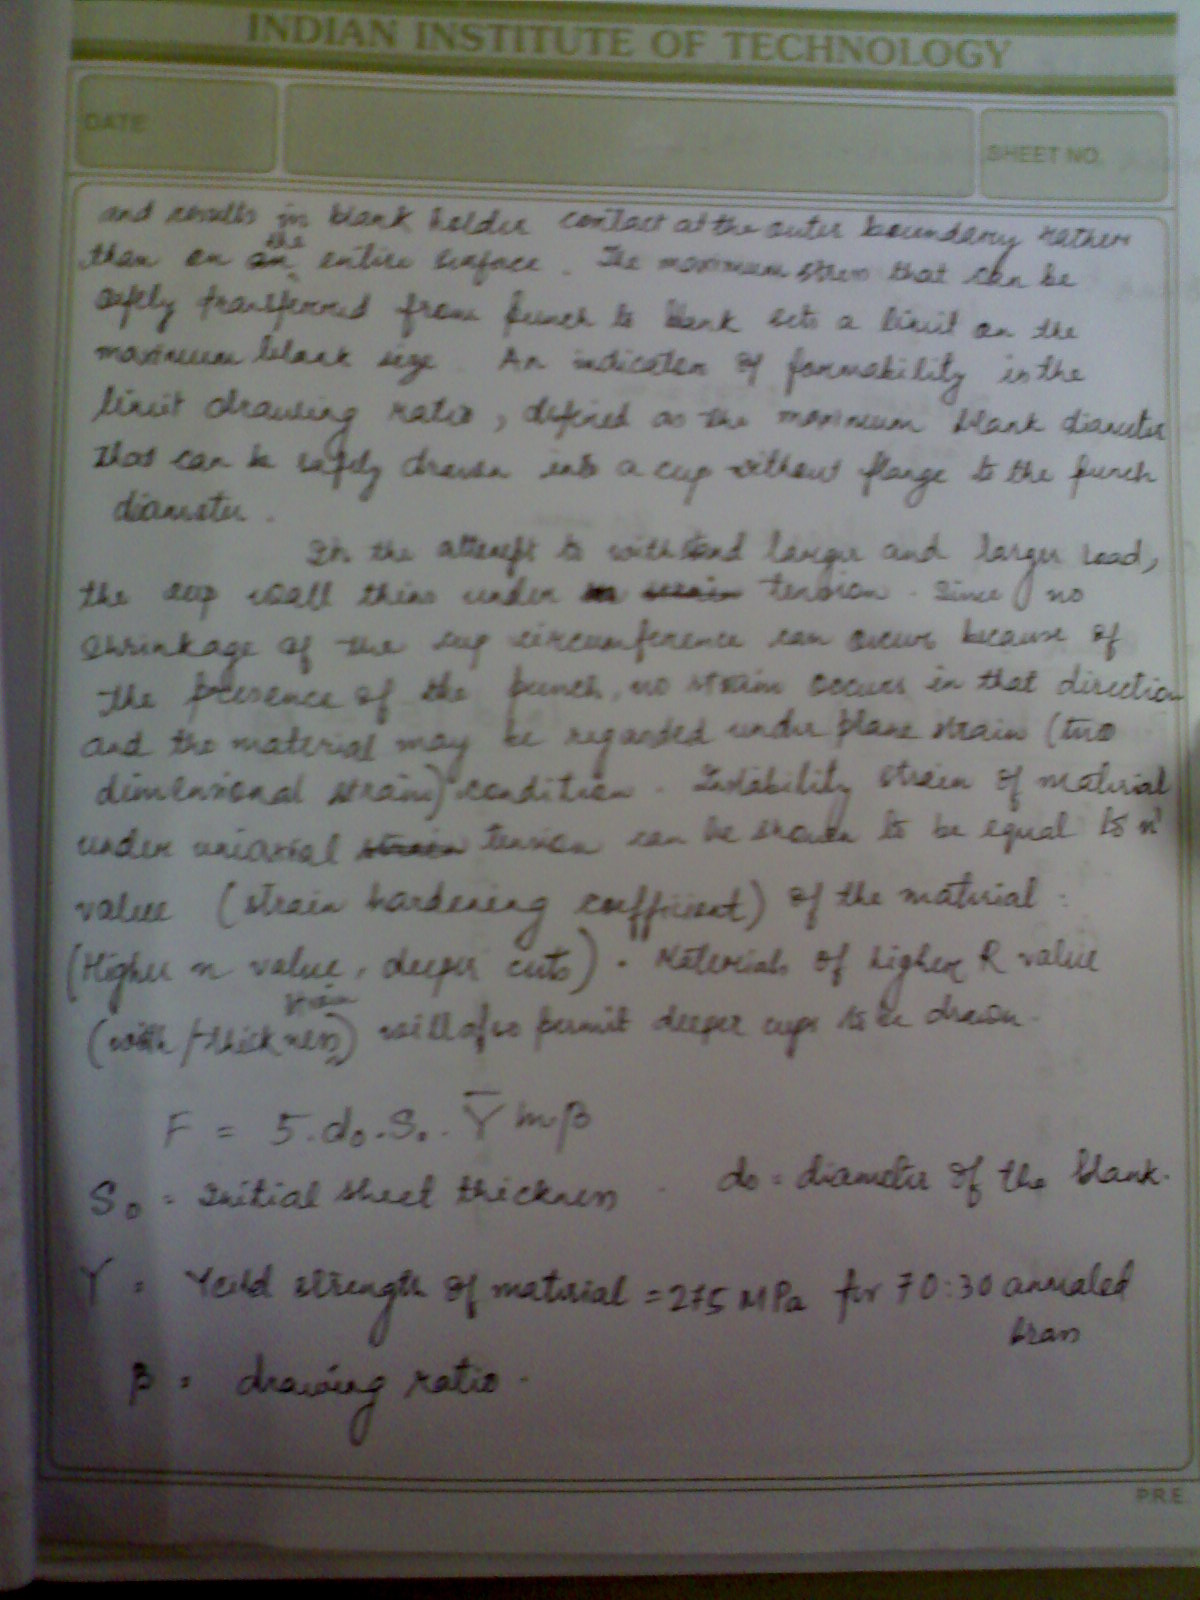 INDIAN INSTITUTE OF TECHNOLOGY
DATE
SHEET NO.
and results in blank holder contact at the outer boundary rather
than on an the entire surface. The maximum stress that can be
safely transferred from punch to blank sets a limit on the
maximum blank size. An indicator of formability is the
limit drawing ratio, defined as the maximum blank diameter
that can be safely drawn into a cup without flange to the punch
diameter.
In the attempt to withstand larger and larger load,
the cup wall thins under strain tension. Since no
shrinkage of the cup circumference can occur because of
the presence of the punch, no strain occurs in that direction
and the material may be regarded under plane strain (two
dimensional strain) condition. Instability strain of material
under uniaxial strain tension can be shown to be equal to n
value (strain hardening coefficient) of the material.
(Higher n value, deeper cuts). Materials of higher R value
(width/thickness strain) will also permit deeper cups to be drawn.
F = 5.d₀.S₀.Y̅ ln β
S₀ = Initial sheet thickness. d₀ = diameter of the blank.
Y = Yeild strength of material = 275 MPa for 70:30 annealed
brass
β = drawing ratio.
P.R.E.